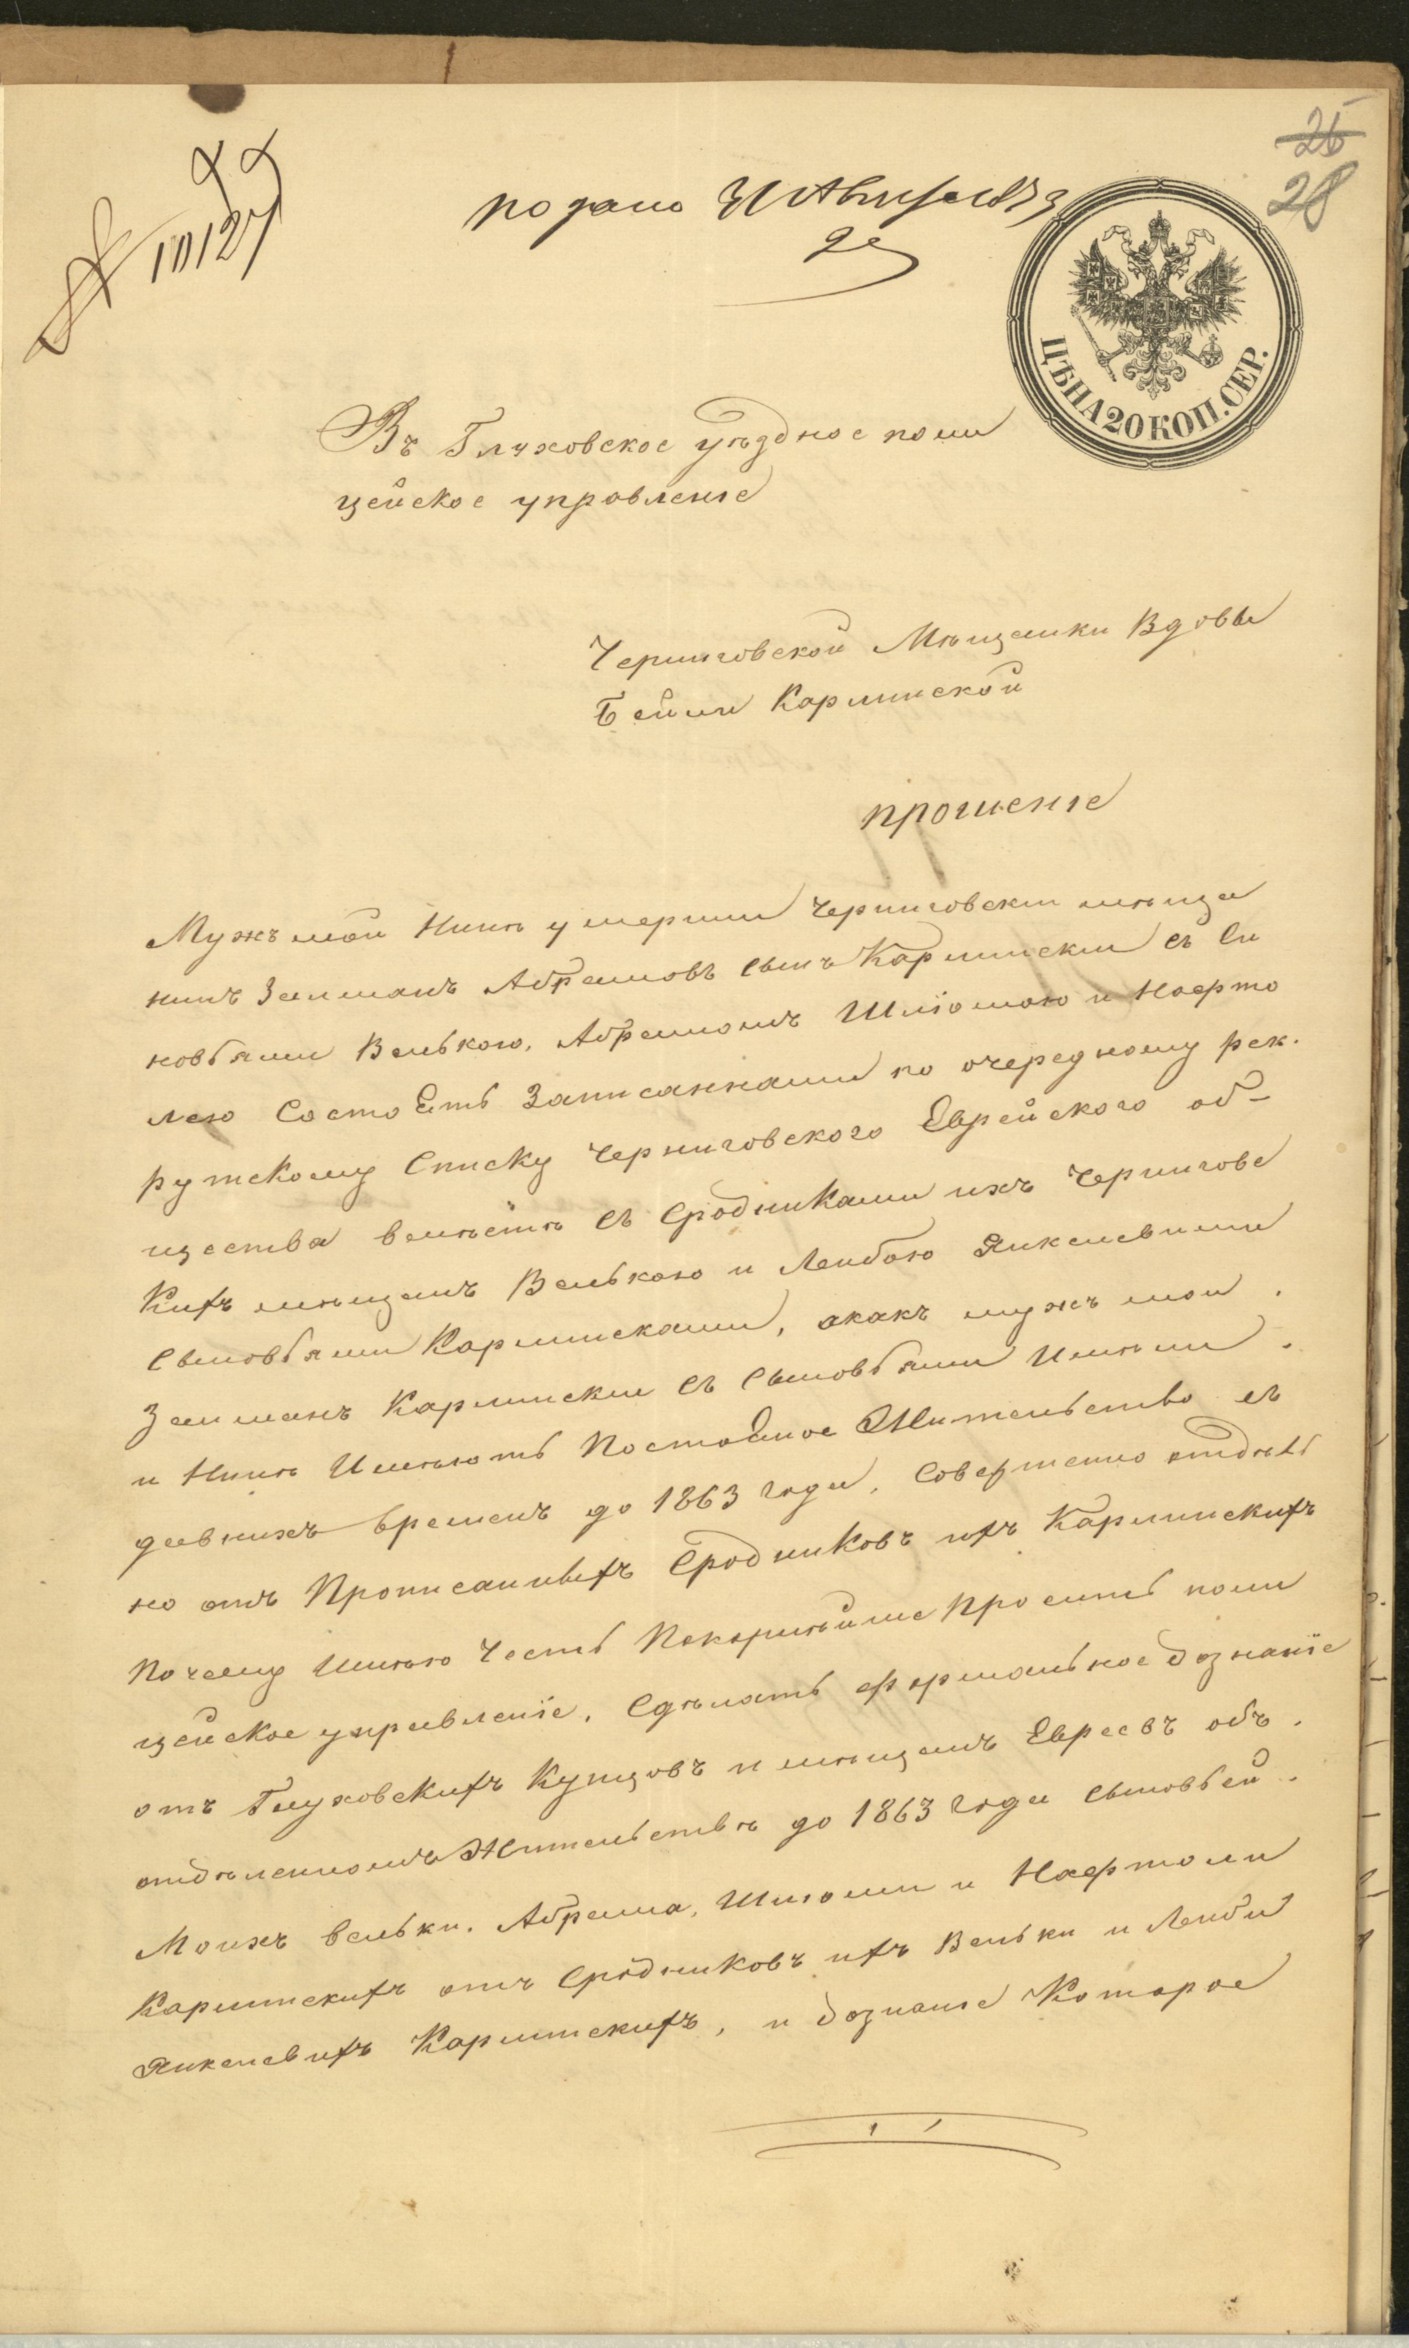 25
28
10127
подано 31 Августа 1873
ЦѢНА 20 КОП. СЕР.
Въ Глуховское уѣздное поли
цейское управленіе
Черниговской Мѣщанки Вдовы
Бейли Карлинской
прошеніе
Мужъ мой Нинѣ умерши Черниговски мѣща
нинъ Залманъ Абрамовъ сынъ Карлински съ Си
новбями Велькою, Абрамомъ Шліомою и Нафто
лею Состоятъ Записанными по очередному рек.
рутскому Списку Черниговского Еврейского об-
щества вмѣстѣ съ Сродниками ихъ Чернигове
кихъ мѣщанъ Велькою и Лейбою Янкелевими
Сыновбями Карлинскими, акакъ мужъ мои
Залманъ Карлински съ Сыновбями Имѣли
и Нинѣ Имѣютъ Постоянное Жительство съ
давнихъ временъ до 1863 года, Совершено отдѣль
но отъ Прописанныхъ Сродниковъ ихъ Карлинскихъ
Почему Имѣю Честь Покорнѣйше Просить поли
цейское управленіе, Сдѣлать формальное дознаніе
отъ Глуховскихъ Купцовъ и мѣщанъ Евреевъ объ
отдѣленномъ Жительствѣ до 1863 года Сыновбей
Моихъ Вельки, Абрама, Шліоми и Нафтоли
Карлинскихъ отъ Сродниковъ ихъ Вельки и Лейби
Янкелевихъ Карлинскихъ, и дознаніе Которое